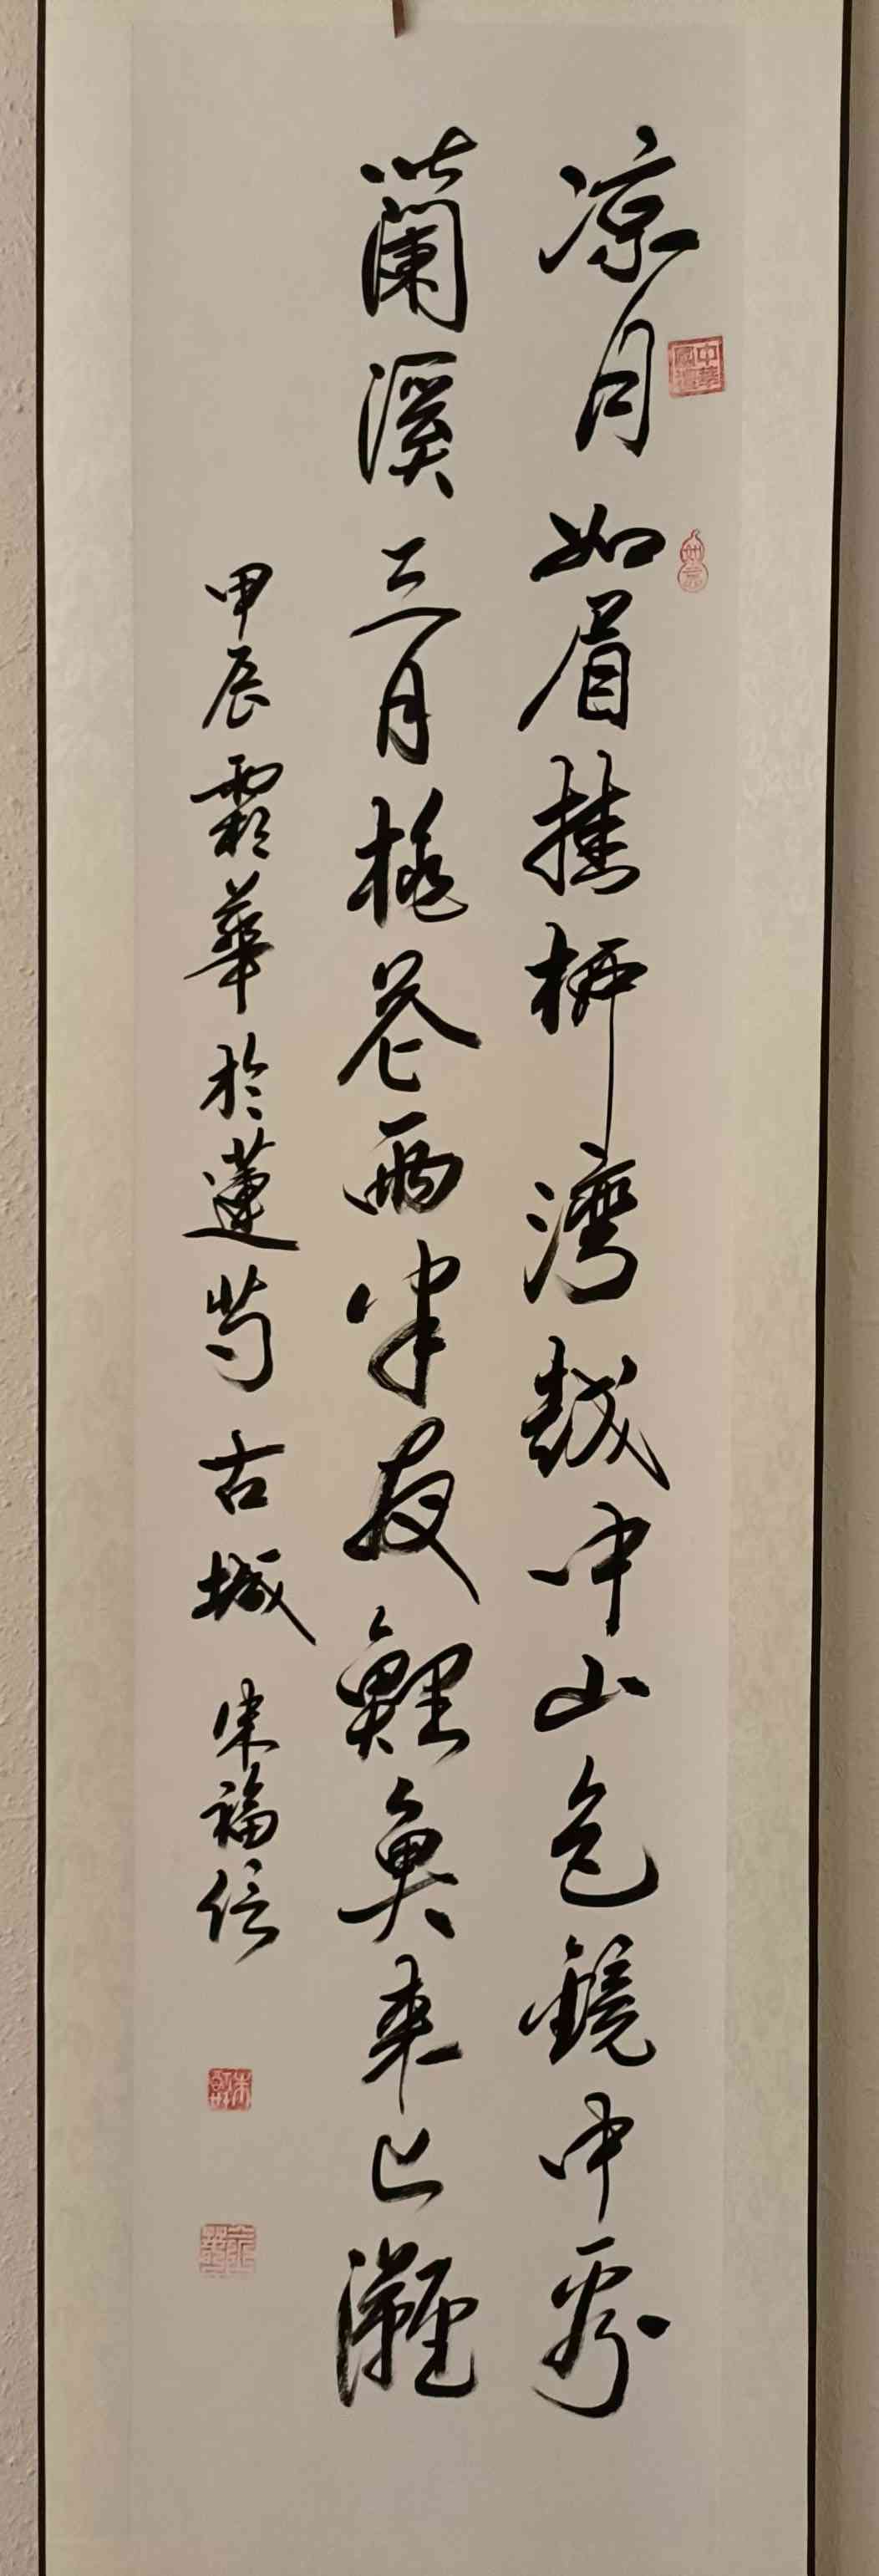 凉月如眉掛柳湾越中山色鏡中看
蘭溪三月桃花雨半夜鯉魚来上灘
甲辰霜華於蓮芍古城 朱福信